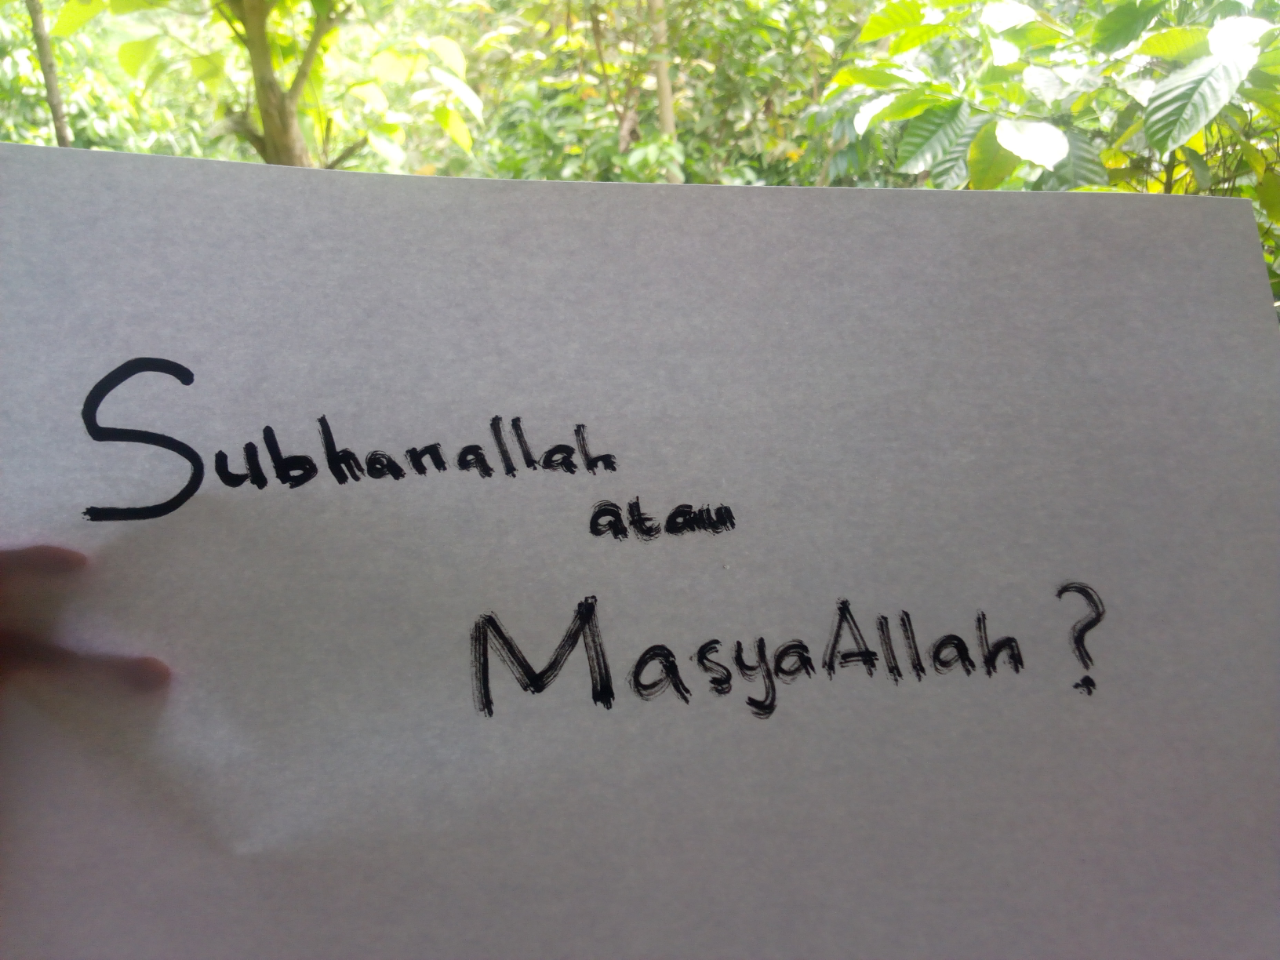 Subhanallah
atau
MasyaAllah ?